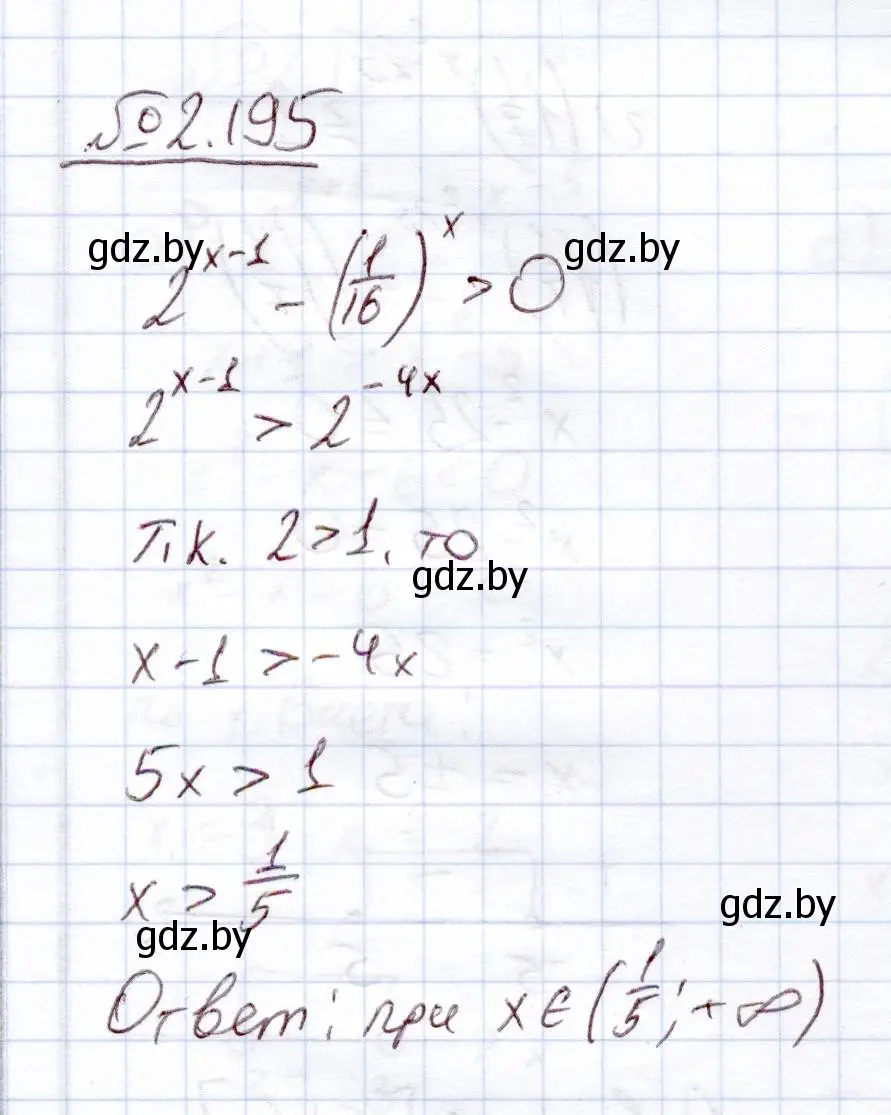 №2.195
gdz.by gdz.by
2^{x-1} - (1/16)^x > 0
2^{x-1} > 2^{-4x}
Т.к. 2>1, то
gdz.by
x-1 > -4x
5x > 1
x > 1/5
gdz.by
gdz.by
Ответ: при x∈(1/5; +∞)